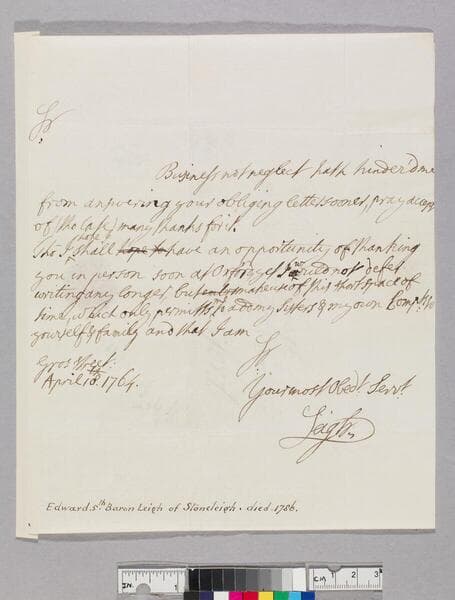 Sr
Business not neglect hath hinder'd me
from answering your obliging letter sooner, pray accept
of (tho' late) many thanks for it.
Tho' I hope shall hope to have an opportunity of thanking
you in person soon at I would not defer
writing any longer, but only make use of this short space of
time, which only permits me to add my Sisters & my own Compts to
yourself & family and that I am
Sr
Gros Street
April 10th 1764.
Your most Obedt Servt
Leigh
Edward 5th Baron Leigh of Stoneleigh. died 1786.
IN. 1
CM 1 2 3